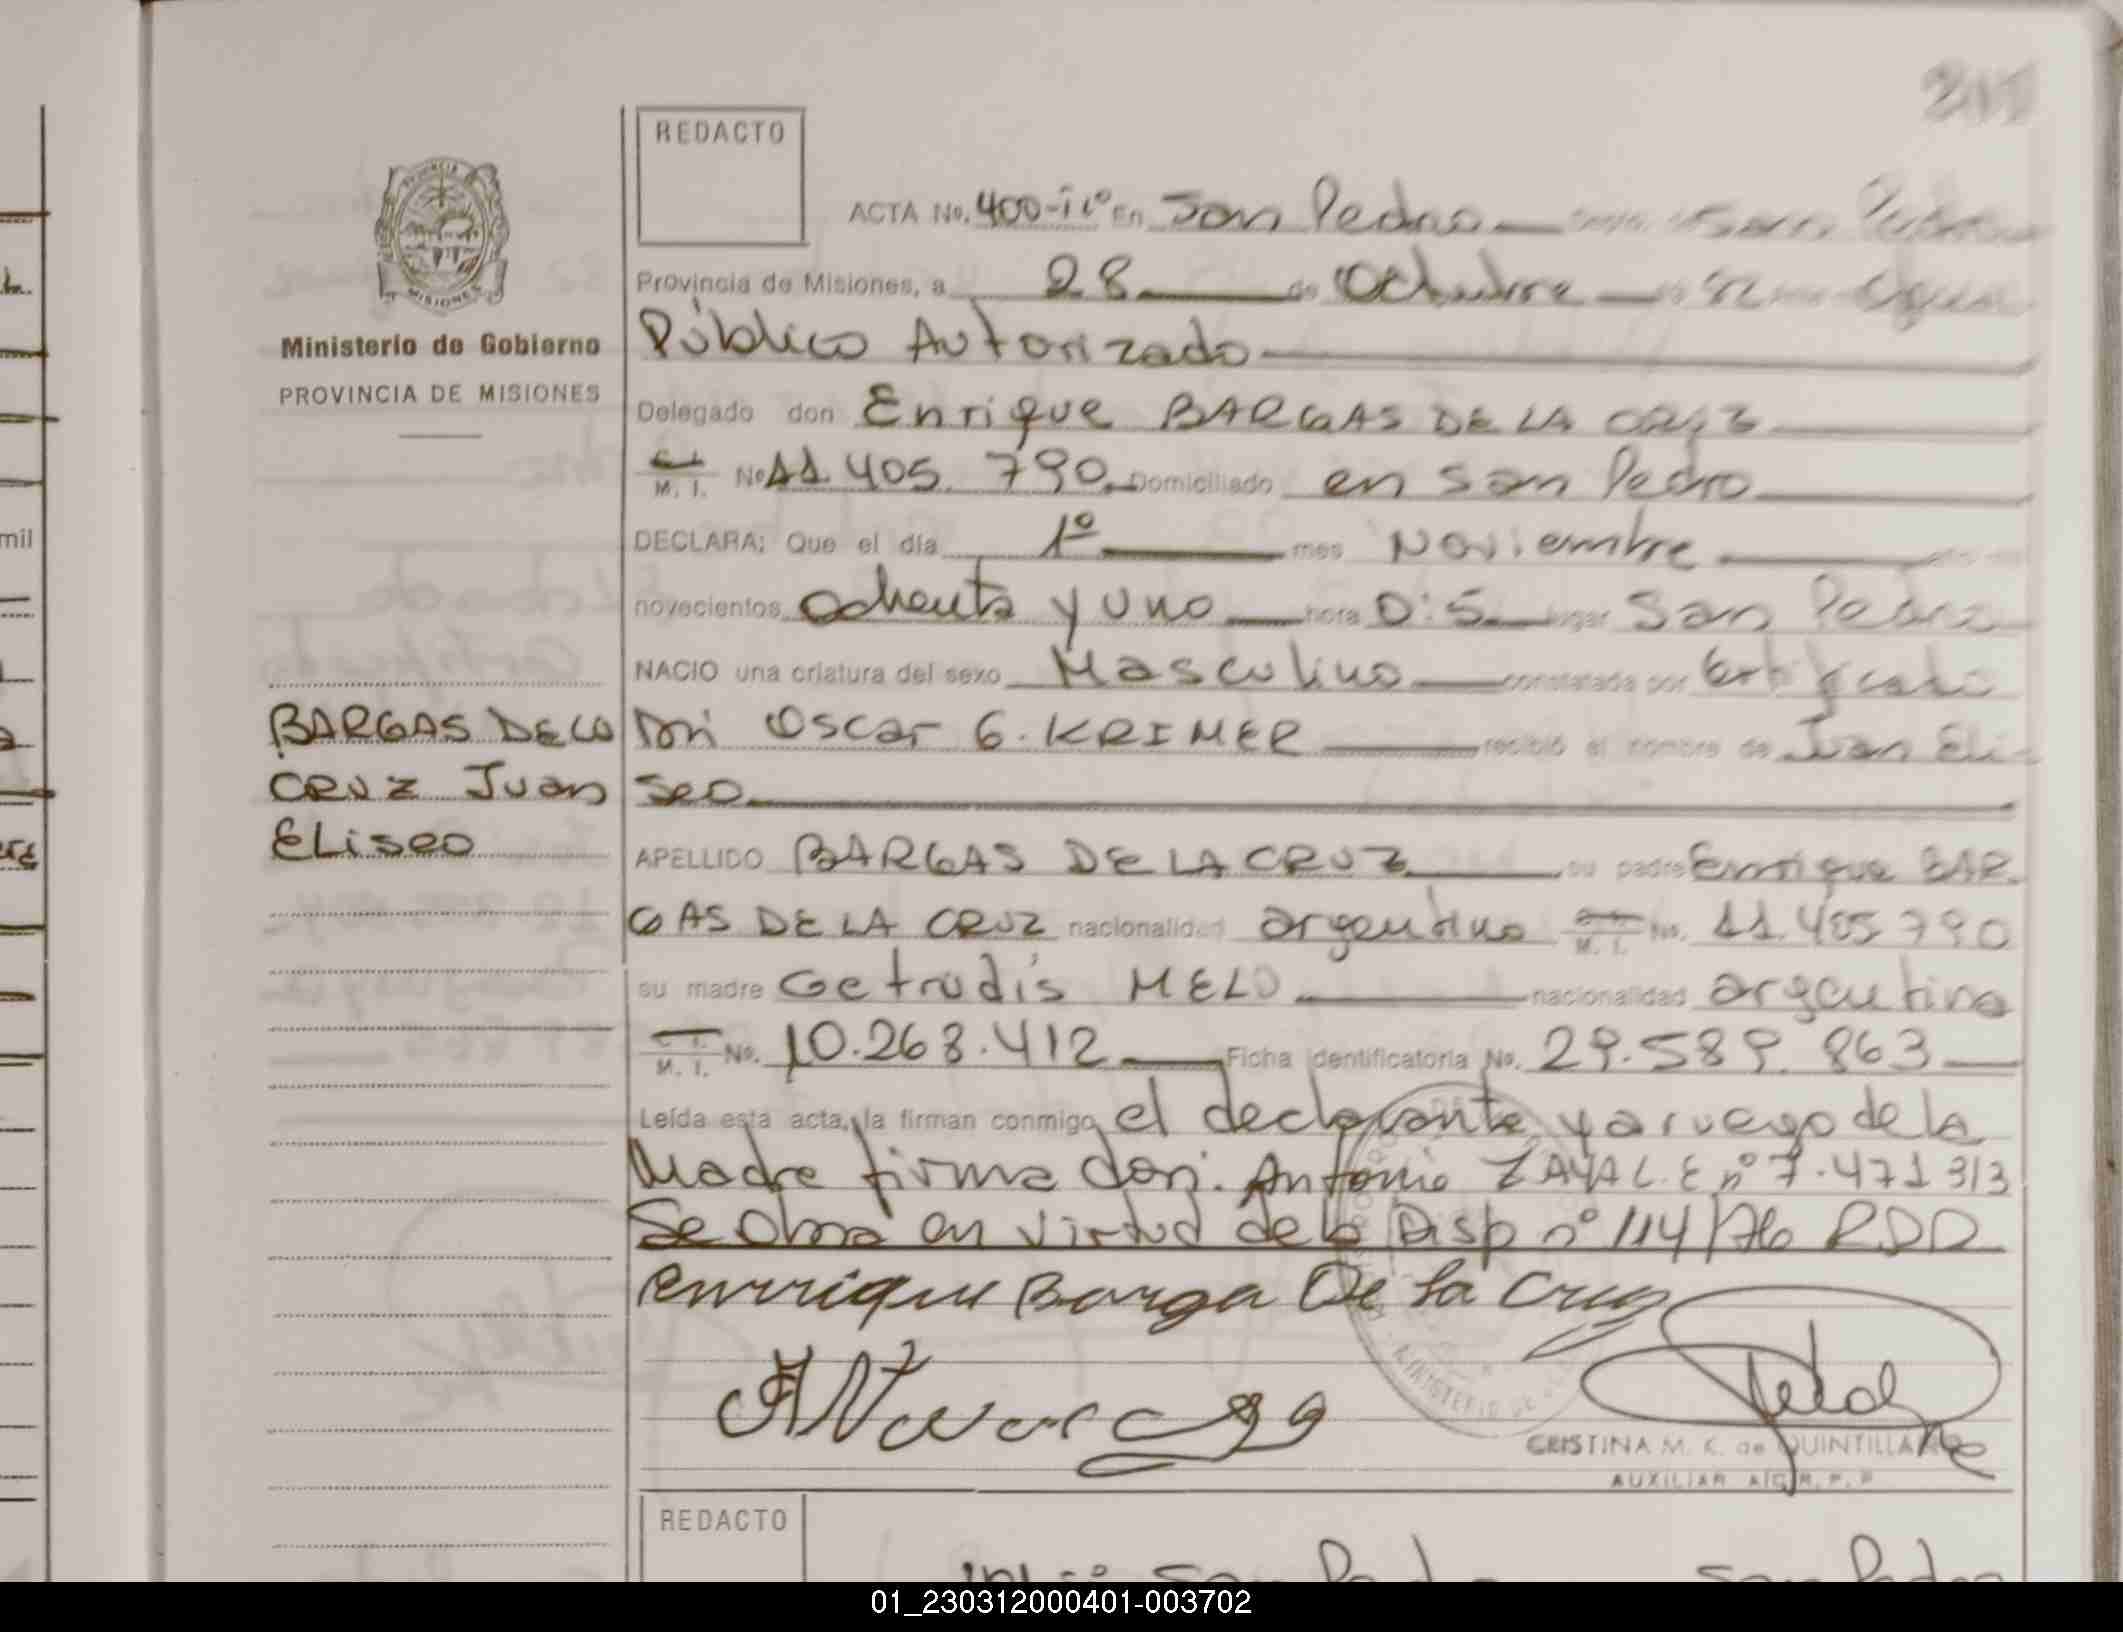 REDACTO
ACTA No. 400-iv° En San Pedro San Pedro
Provincia de Misiones, a 28 de Octubre 82
Público Autorizado
Ministerio de Gobierno
PROVINCIA DE MISIONES
Delegado don Enrique BARGAS DE LA CRUZ
M. I. No 11.405.790. Domiciliado en San Pedro
DECLARA: Que el día 1º mes Noviembre
novecientos ochenta y uno hora 0:5 lugar San Pedro
NACIO una criatura del sexo Masculino constatada por
BARGAS DE LA
CRUZ Juan
ELiseo
Oscar G. KRIMER recibió el nombre de Juan Eli-
seo
APELLIDO BARGAS DE LA CRUZ su padre Enrique BAR-
GAS DE LA CRUZ nacionalidad argentino M. I. No. 11.405 790
su madre Getrudis MELO nacionalidad argentina
C. I. M. I. No. 10.268.412 Ficha identificatoria No. 29.589.863
Leída esta acta, la firman conmigo el declarante y a ruego de la
Madre firma don: Antonio ZAYA L.E nº 7.471 313
Se obra en virtud de la Disp nº 114/76 RDD
Enrrique Barga De la Cruz
CRISTINA M. K. de QUINTILLA
AUXILIAR
REDACTO
San Pedro San Pedro
01_230312000401-003702